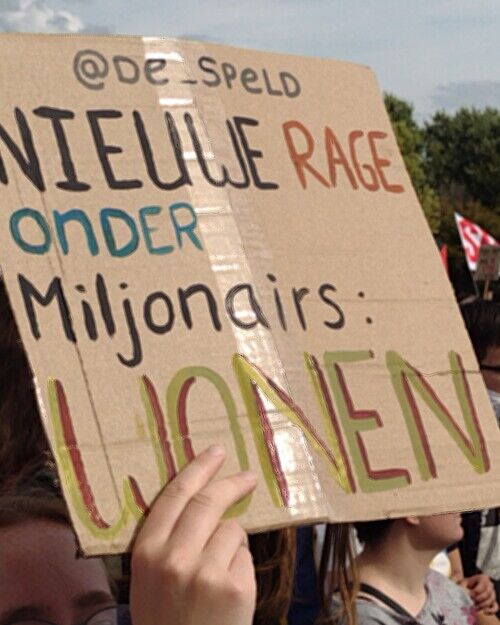 @DE_SPELD
NIEUWE RAGE
ONDER
Miljonairs:
WONEN